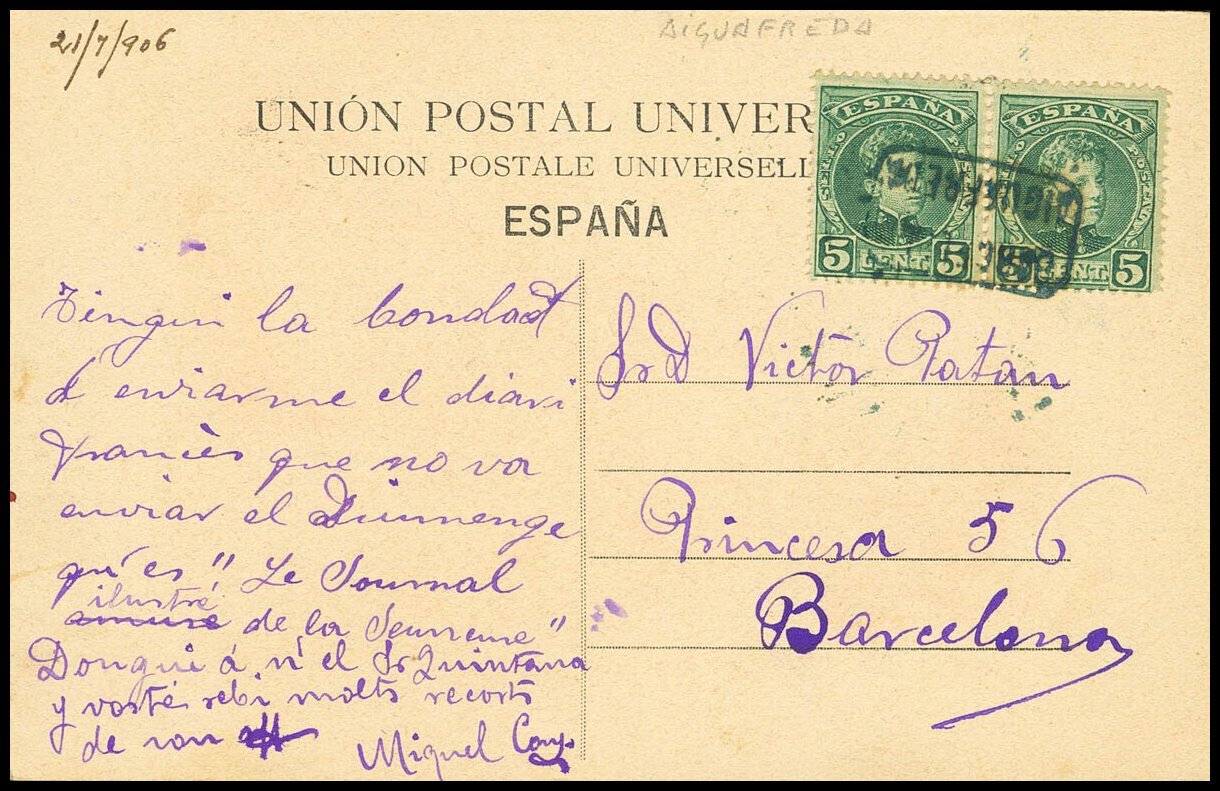 21/7/906
AIGUAFREDA
UNIÓN POSTAL UNIVER
UNION POSTALE UNIVERSELL
ESPAÑA
ESPAÑA ESPAÑA
AIGUAFREDA
5 CENT. 5 5 CENT. 5
Tingui la bondad
d enviarme el diari
francès que no va
enviar el Diumenge
qu'es " Le Journal
ilustré
de la Semmene"
Dongui á n' el Sr Quintana
y vosté rebi molts recorts
de
Miquel
Sr D Victor Patan
Princesa 56
Barcelona